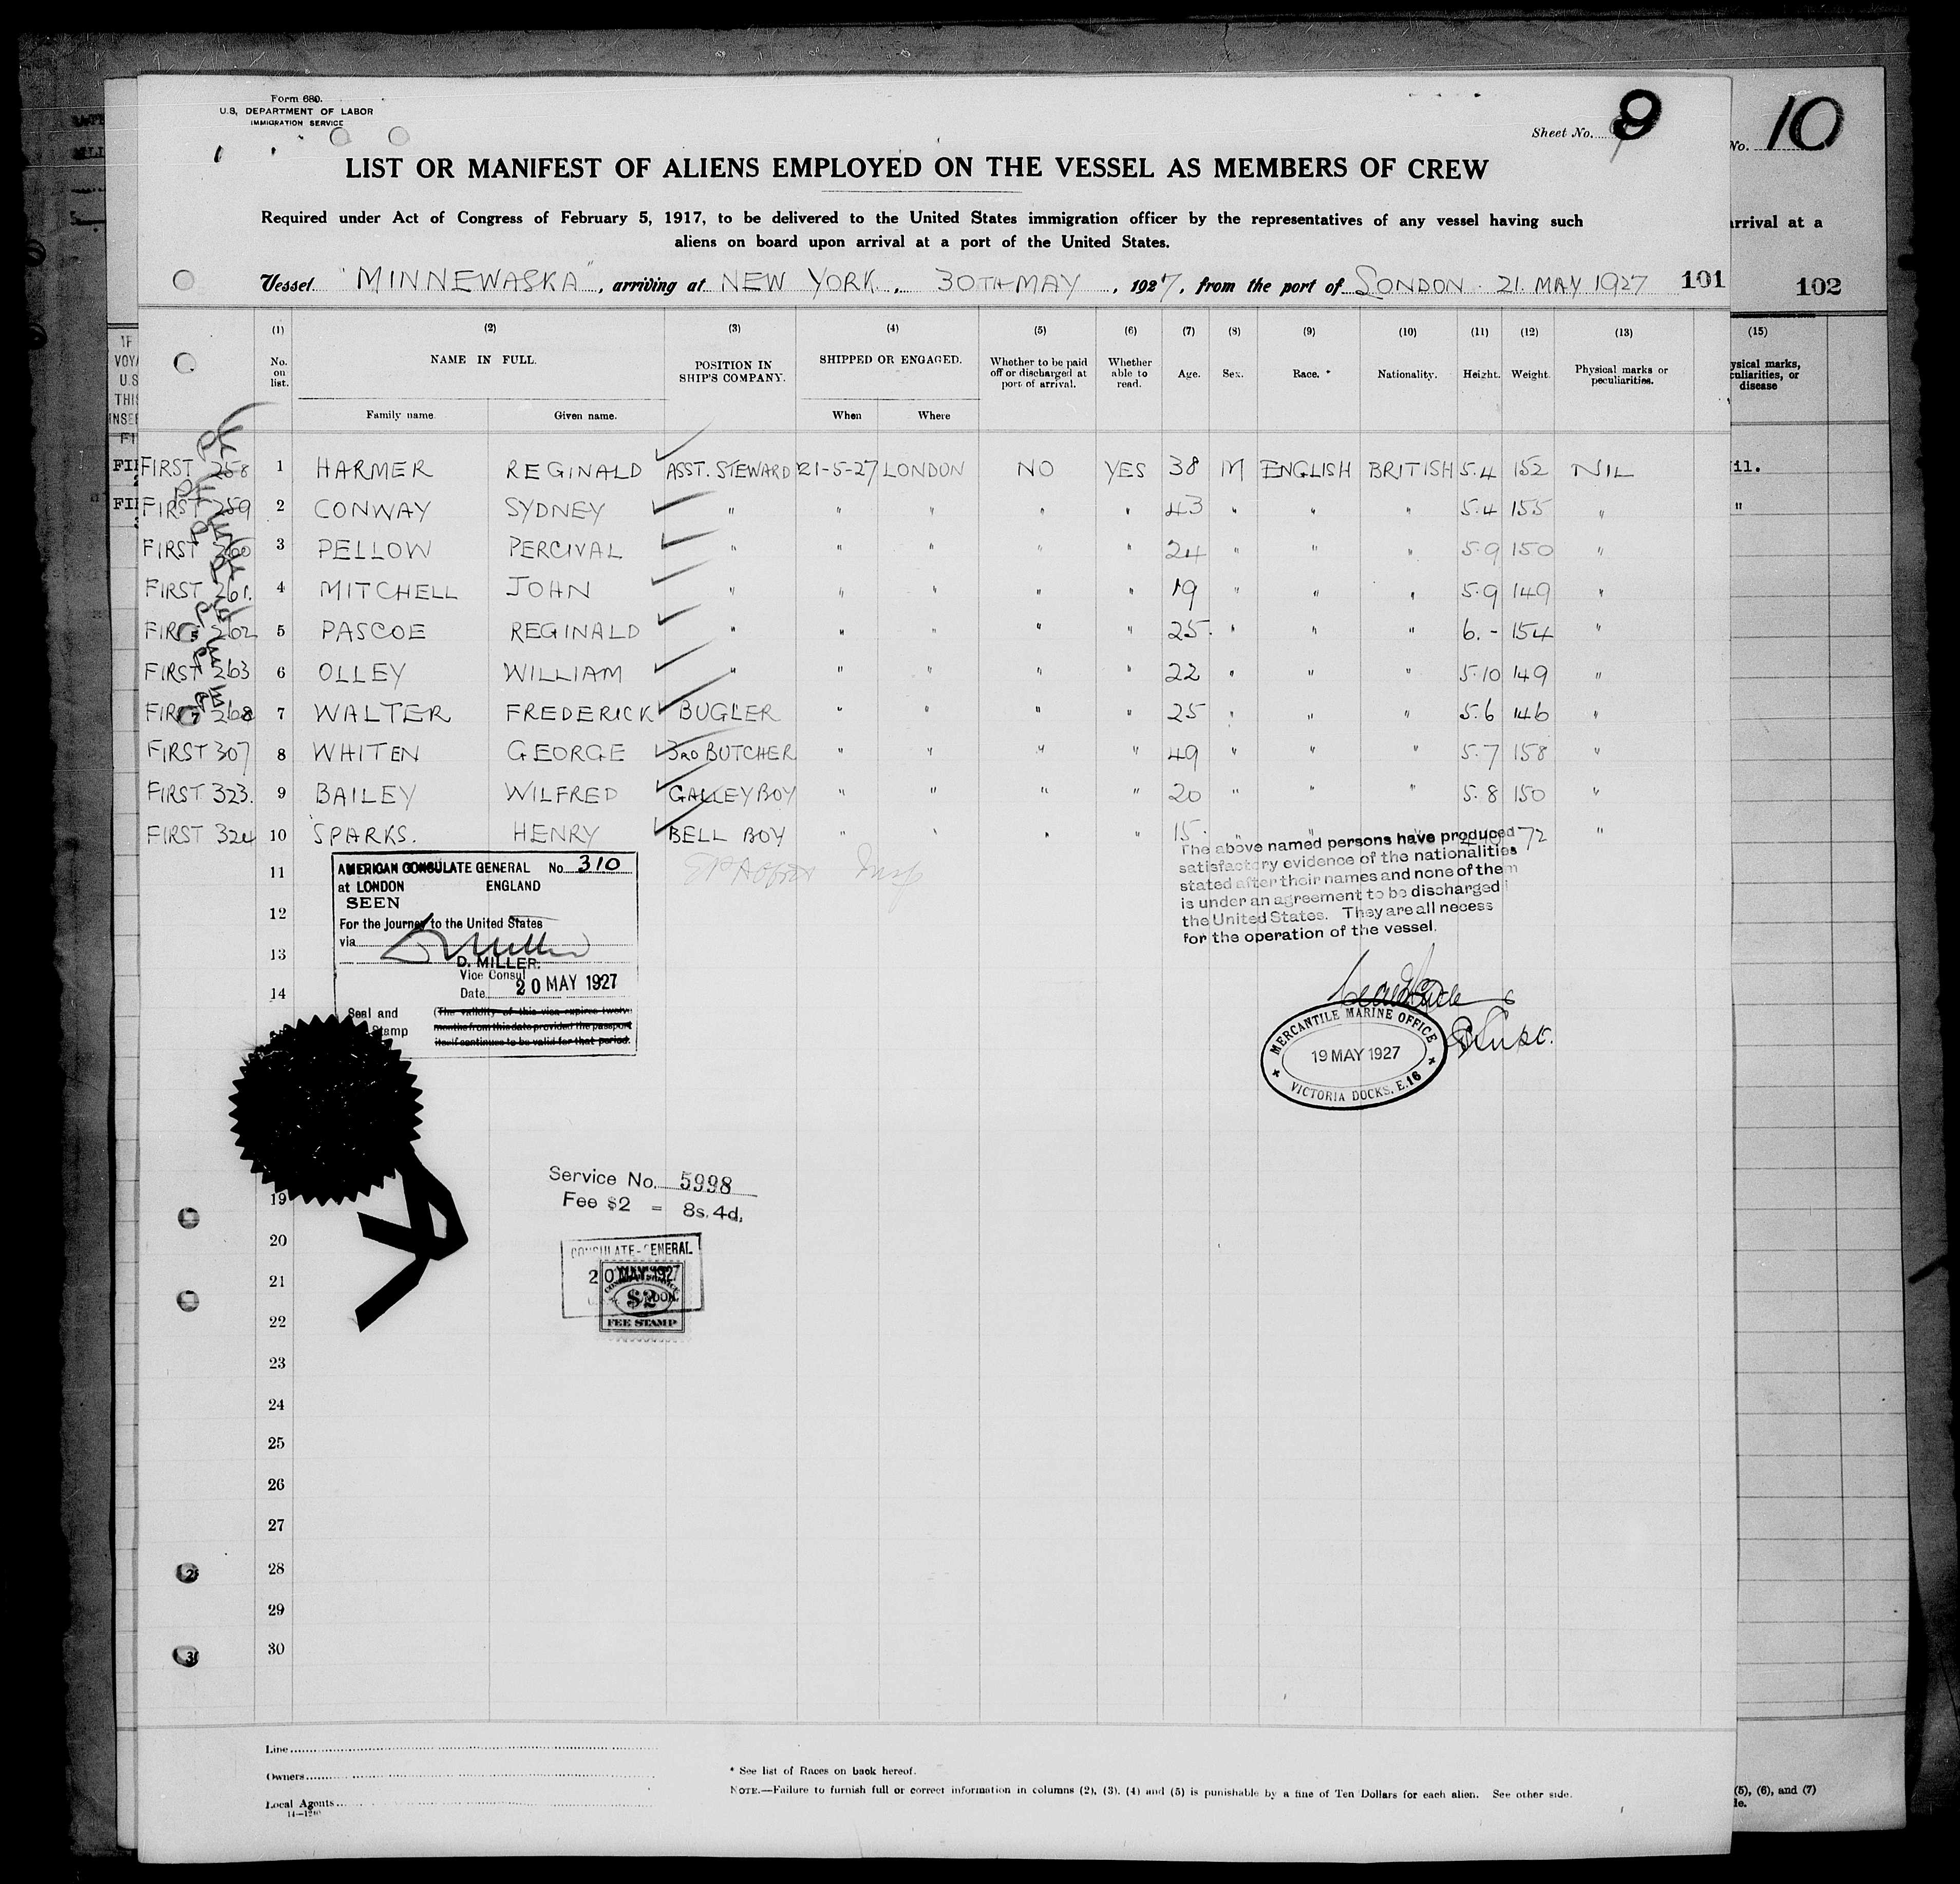 Form 680.
U.S. DEPARTMENT OF LABOR
IMMIGRATION SERVICE
Sheet No. 9
No. 10
LIST OR MANIFEST OF ALIENS EMPLOYED ON THE VESSEL AS MEMBERS OF CREW
Required under Act of Congress of February 5, 1917, to be delivered to the United States immigration officer by the representatives of any vessel having such
aliens on board upon arrival at a port of the United States.
arrival at a
Vessel "MINNEWASKA", arriving at NEW YORK, 30TH MAY, 1927, from the port of LONDON. 21. MAY 1927 101
102
(1) (2) (3) (4) (5) (6) (7) (8) (9) (10) (11) (12) (13) (15)
No. on list. NAME IN FULL. POSITION IN SHIP'S COMPANY. SHIPPED OR ENGAGED. Whether to be paid off or discharged at port of arrival. Whether able to read. Age. Sex. Race. * Nationality. Height. Weight. Physical marks or peculiarities.
Family name. Given name. When Where
FIRST 258 1 HARMER REGINALD ASST. STEWARD 21-5-27 LONDON NO YES 38 M ENGLISH BRITISH 5.4 152 NIL
FIRST 259 2 CONWAY SYDNEY " " " " " 43 " " " 5.4 155 "
FIRST 260 3 PELLOW PERCIVAL " " " " " 24 " " " 5.9 150 "
FIRST 261. 4 MITCHELL JOHN " " " " " 19 " " " 5.9 149 "
FIRST 262 5 PASCOE REGINALD " " " " " 25. " " " 6. - 154 "
FIRST 263 6 OLLEY WILLIAM " " " " " 22 " " " 5.10 149 "
FIRST 268 7 WALTER FREDERICK BUGLER " " " " 25 " " " 5.6 146 "
FIRST 307 8 WHITEN GEORGE 3RD BUTCHER " " " " 49 " " " 5.7 158 "
FIRST 323. 9 BAILEY WILFRED GALLEY BOY " " " " 20 " " " 5.8 150 "
FIRST 324 10 SPARKS. HENRY BELL BOY " " " " 15. " " " 72 "
11
12
13
14
19
20
21
22
23
24
25
26
27
28
29
30
AMERICAN CONSULATE GENERAL No. 310
at LONDON ENGLAND
SEEN
For the journey to the United States
via
D. MILLER.
Vice Consul
Date 20 MAY 1927
Seal and
Stamp
(The validity of this visa expires twelve
months from this date provided the passport
itself continues to be valid for that period.
The above named persons have produced
satisfactory evidence of the nationalities
stated after their names and none of them
is under an agreement to be discharged i
the United States. They are all necess
for the operation of the vessel.
MERCANTILE MARINE OFFICE
19 MAY 1927
VICTORIA DOCKS, E.16
Service No. 5998
Fee $2 = 8s. 4d.
CONSULATE-GENERAL
20 MAY 1927
$2
FEE STAMP
Line
Owners
Local Agents
* See list of Races on back hereof.
NOTE.—Failure to furnish full or correct information in columns (2), (3), (4) and (5) is punishable by a fine of Ten Dollars for each alien. See other side.
(5), (6), and (7)